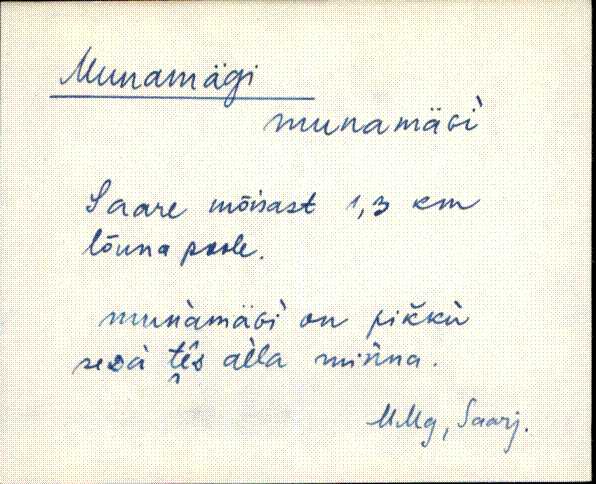 Munamägi
munamäɢì
Saare mõisast 1,3 km
lõuna poole.
munàmäɢì on pikkù
tês alla minna.
MMg, Saarj.